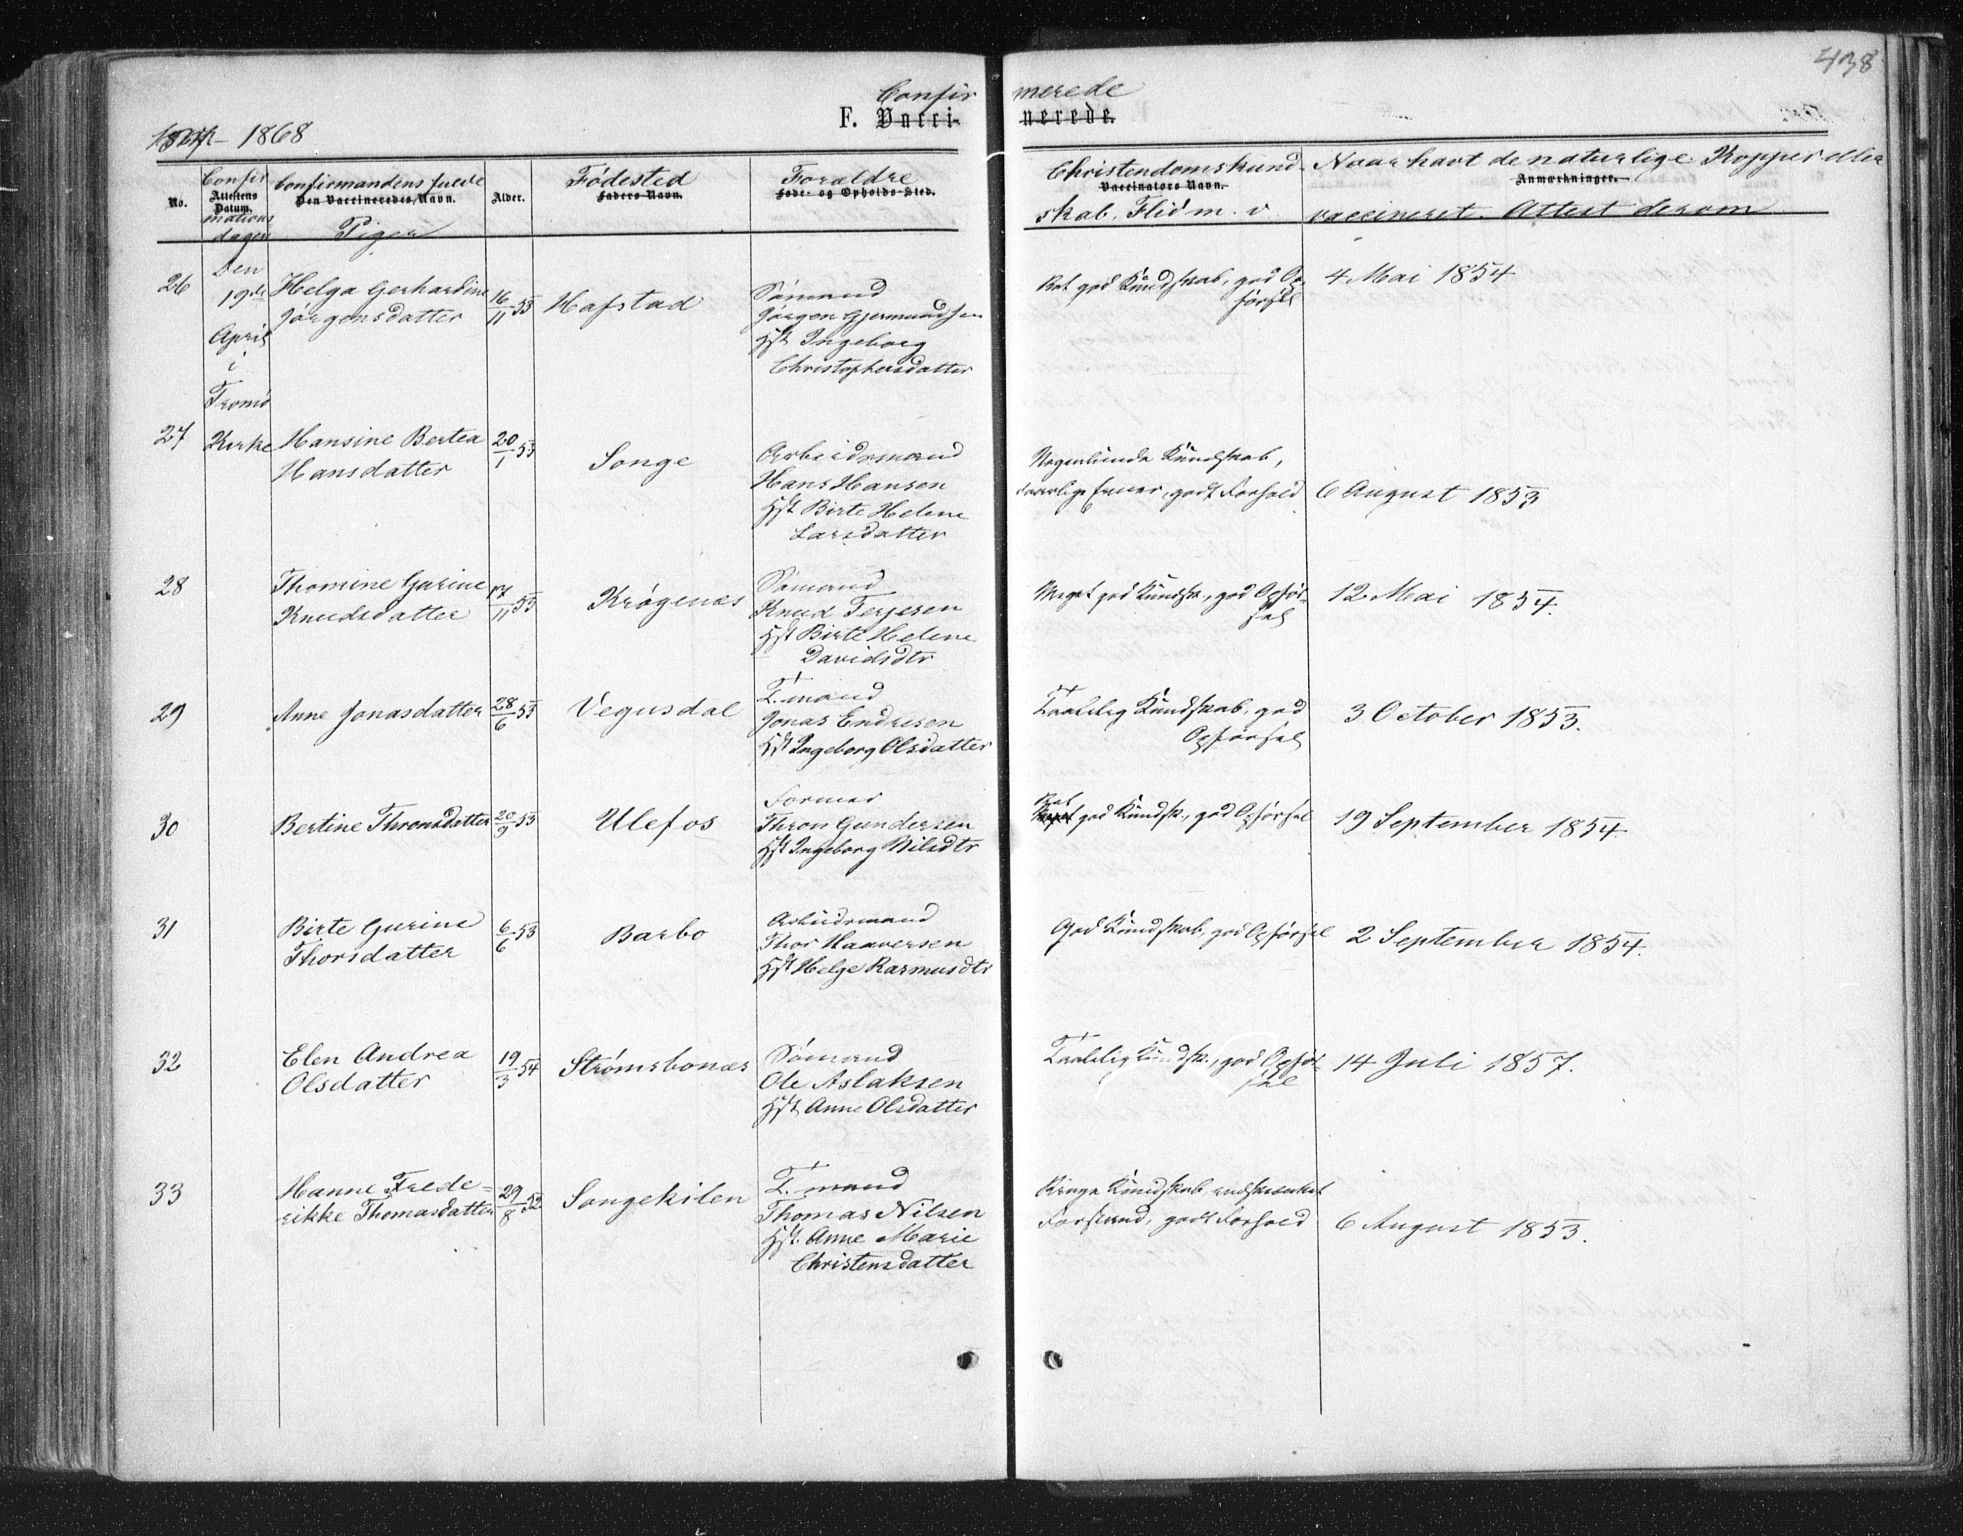 438
Confir merede
F. Vacci- nerede.
1868
No.
Confir
Attestens
Datum.
mations
dagen
Confirmandens fulde
Den Vaccineredes Navn.
Piger
Alder.
Fødested
Faders Navn.
Forældre
Føde- og Opholds-Sted.
Christendomskund-
Vaccinators Navn.
skab. Flid m. v
Naar havt de naturlige Kopper eller
Anmærkninger.
vaccineret. Attest derom
Den
19de
April
i
Tromø
Kirke
26
Helga Gerhardine
Jørgensdatter
16/11 53
Hafstad
Sømand
Jørgen Gjermundsen
Hst Ingeborg
Christophersdatter
Ret god Kundskab, god Op-
førsel
4 Mai 1854
27
Hansine Bertea
Hansdatter
20/1 53
Songe
Arbeidsmand
Hans Hansen
Hst Birte Helene
Larsdatter
Nogenlunde Kundskab,
daarlige Evner, godt Forhold
6 August 1853
28
Thomine Gurine
Knudsdatter
17/11 53
Krøgenæs
Sømand
Knud Terjesen
Hst Birte Helene
Davidsdtr
Meget god Kundsk., god Opfør-
sel
12 Mai 1854.
29
Anne Jonasdatter
28/6 53
Vegusdal
T. mand
Jonas Endresen
Hst Ingeborg Olsdatter
Taalelig Kundskab, god
Opførsel
3 October 1853.
30
Bertine Thronsdatter
20/9 53
Ulefos
Former
Thron Gundersen
Hst Ingeborg Nilsdtr
Ret
Meget god Kundsk., god Opførsel
19 September 1854
31
Birte Gurine
Thorsdatter
6/6 53
Barbo
Arbeidsmand
Thor Haaversen
Hst Helge Rasmusdtr
God Kundskab, god Opførsel
2 September 1854.
32
Elen Andrea
Olsdatter
19/3 54
Strømsbonæs
Sømand
Ole Aslaksen
Hst Anne Olsdatter
Taalelig Kundsk., god Opfør-
sel
14 Juli 1857.
33
Hanne Frede-
rikke Thomasdatter
29/8 52
Songekilen
T. mand
Thomas Nilsen
Hst. Anne Marie
Christensdatter
Ringe Kundskab, indskrænket
Forstand, godt Forhold
6 August 1853.